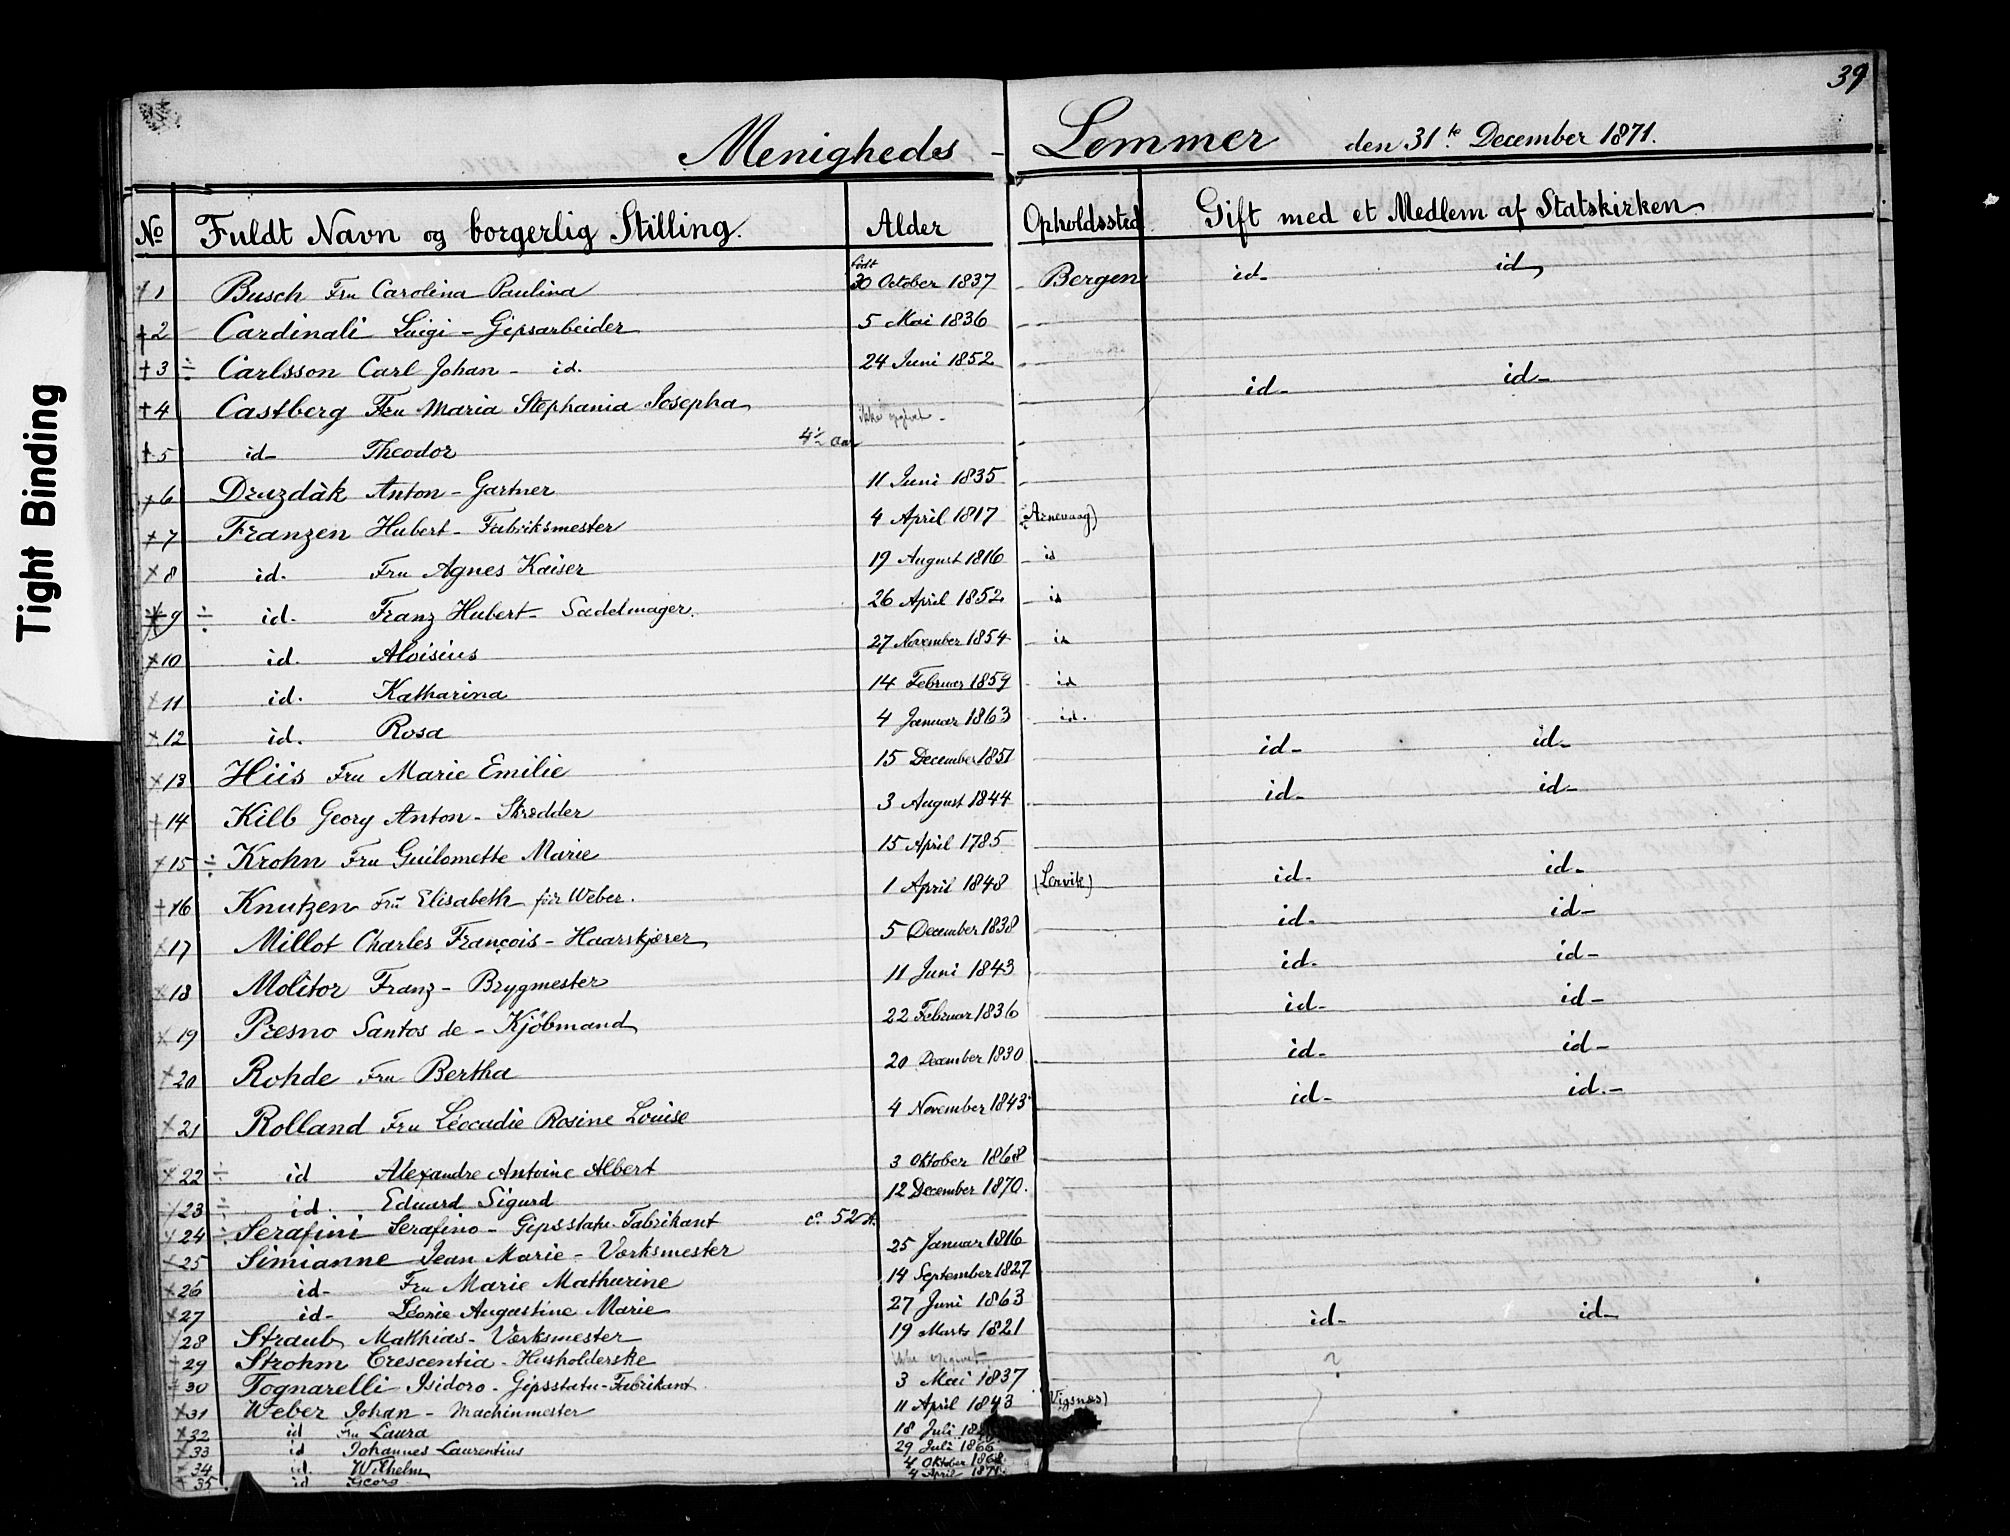 39
Menigheds - Lemmer den 31te December 1871.
No Fuldt Navn og borgerlig Stilling. Alder Opholdssted Gift med et Medlem af Statskirken
+ 1 Busch Fru Carolina Paulina født 30 October 1837 - Bergen id- id
+ 2 Cardinali Luigi - Gipsarbeider 5 Mai 1836 -
+ 3 ÷ Carlsson Carl Johan - id. 24 Juni 1852 -
+ 4 Castberg Fru Maria Stephania Josepha ikke opgivet - id- id-
+ 5 id- Theodor 4½ Aar -
+ 6 Druzdàk Anton - Gartner 11 Juni 1835 -
+ 7 Franzen Hubert - Fabriksmester 4 April 1817 (Arnevaag)
x 8 id. Fru Agnes Kaiser 19 August 1816 - id
x 9 ÷ id. Franz Hubert - Sadelmager. 26 April 1852 - id
x 10 id. Aloisius 27 November 1854 - id
x 11 id. Katharina 14 Februar 1859 id
x 12 id. Rosa 4 Januar 1863 id.
x 13 Hiis Fru Marie Emilie 15 December 1851 id- id-
+ 14 Kilb Georg Anton - Skrædder 3 August 1844 - id- id-
x 15 ÷ Krohn Fru Guilomette Marie 15 April 1785 -
+ 16 Knutzen Fru Elisabeth før Weber. 1 April 1848 (Lervik) id- id-
x 17 Millot Charles François - Haarskjærer 5 December 1838 - id- id-
x 18 Molitor Franz - Brygmester 11 Juni 1843 - id- id-
x 19 Presno Santos de - Kjöbmand 22 Februar 1836 - id- id-
x 20 Rohde Fru Bertha 20 December 1830 - id- id-
x 21 Rolland Fru Léocadie Rosine Louise 4 November 1843 - id- id.-
x 22 ÷ id Alexandre Antoine Albert 3 Oktober 1868
x 23 ÷ id. Eduard Sigurd 12 December 1870.
x 24 ÷ Serafini Serafino - Gipsstatu-Fabrikant ca 52 A.
x 25 Simianne Jean Marie - Værksmester 25 Januar 1816
x 26 id- Fru Marie Mathurine 14 September 1827
x 27 id- Léonie Augustine Marie 27 Juni 1863
x 28 Straub Matthias - Værksmester 19 Marts 1821 id- id-
+ 29 Strohm Crescentia - Husholderske ikke opgivet ?
+ 30 Tognarelli Isidoro - Gipsstatu-Fabrikant. 3 Mai 1837
x 31 Weber Johan - Machinmester 11 April 1843 (Vigsnæs)
x 32 id Fru Laura 18 Juli
x 33 id Johannes Laurentius 29 Juli 1866
x 34 id. Wilhelm 4 Oktober 1868
x 35 id Georg 4 April 1871.
Tight Binding